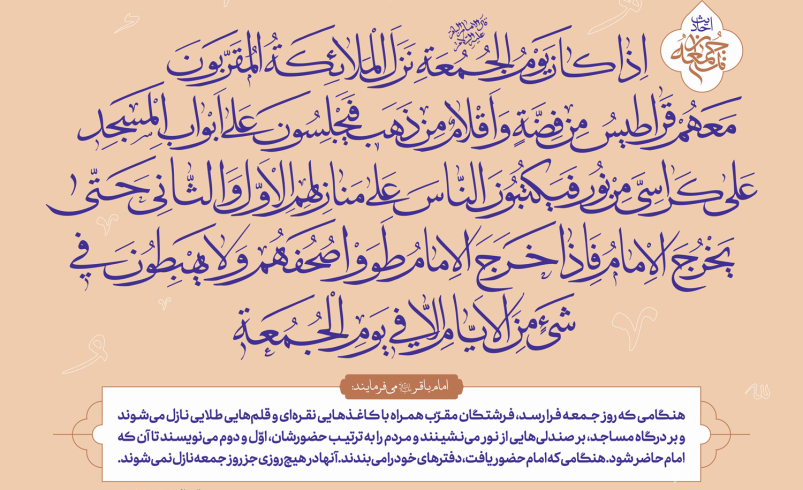 احادیث
نماز جمعه
قال الامام الباقر علیه السلام
إِذَا كَانَ يَوْمُ الْجُمُعَةِ نَزَلَ الْمَلَائِكَةُ الْمُقَرَّبُونَ
مَعَهُمْ قَرَاطِيسُ مِنْ فِضَّةٍ وَأَقْلَامٌ مِنْ ذَهَبٍ فَيَجْلِسُونَ عَلَى أَبْوَابِ الْمَسْجِدِ
عَلَى كَرَاسِيَّ مِنْ نُورٍ فَيَكْتُبُونَ النَّاسَ عَلَى مَنَازِلِهِمُ الْأَوَّلَ وَالثَّانِيَ حَتَّى
يَخْرُجَ الْإِمَامُ فَإِذَا خَرَجَ الْإِمَامُ طَوَوْا صُحُفَهُمْ وَلَا يَهْبِطُونَ فِي
شَيْءٍ مِنَ الْأَيَّامِ إِلَّا فِي يَوْمِ الْجُمُعَةِ
امام باقر می‌فرمایند:
هنگامی که روز جمعه فرا رسد، فرشتگان مقرّب همراه با کاغذهایی نقره‌ای و قلم‌هایی طلایی نازل می‌شوند
و بر درگاه مساجد، بر صندلی‌هایی از نور می‌نشینند و مردم را به ترتیب حضورشان، اوّل و دوم می‌نویسند تا آن که
امام حاضر شود. هنگامی که امام حضور یافت، دفترهای خود را می‌بندند. آنها در هیچ روزی جز روز جمعه نازل نمی‌شوند.